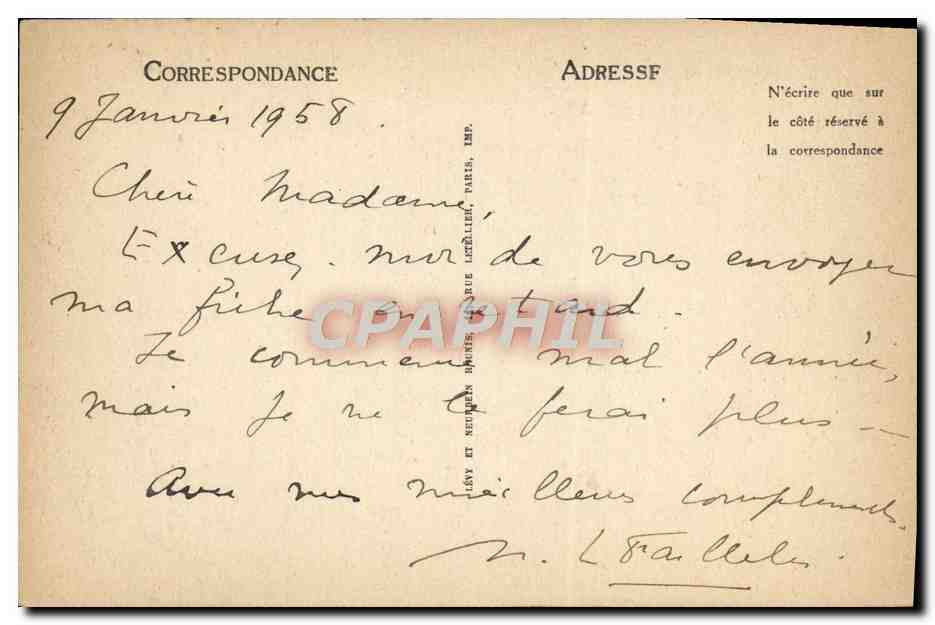 CORRESPONDANCE
ADRESSE
N'écrire que sur
le côté réservé à
la correspondance
9 Janvier 1958.
Chère Madame,
Excusez-moi de vous envoyer
ma fiche en retard.
Je commence mal l'année,
mais je ne le ferai plus —
Avec mes meilleurs compliments.
LÉVY ET NEURDEIN RÉUNIS, RUE LETELLIER, PARIS, IMP.
CPAPHIL